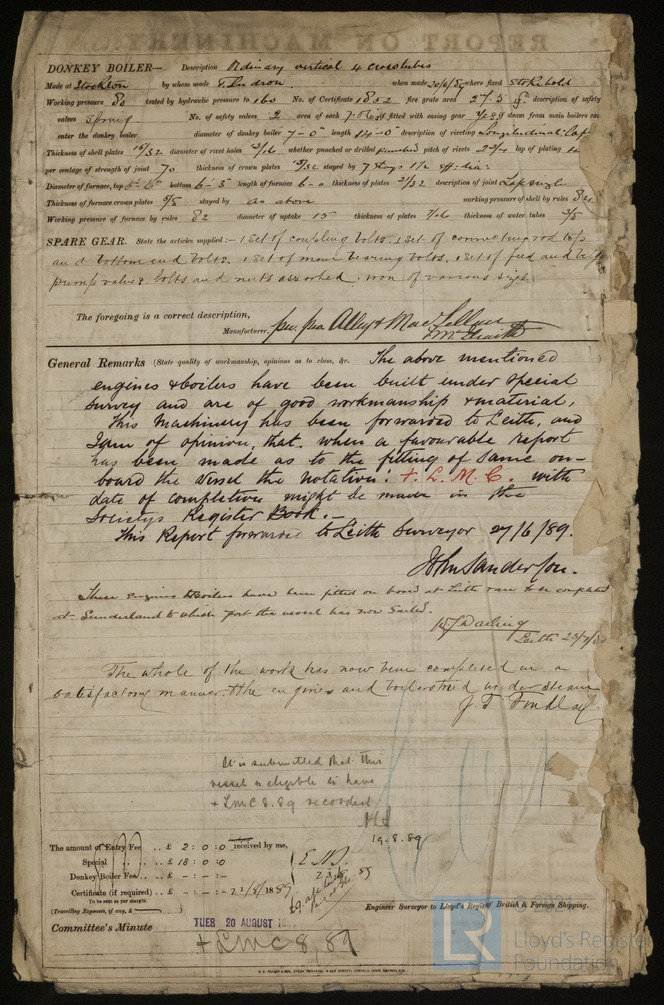 DONKEY BOILER— Description Ordinary vertical 4 crosstubes
Made at Stockton by whom made T. Sudron when made 20/6/89 where fixed Stokehold
Working pressure 80 tested by hydraulic pressure to 160 No. of Certificate 1852 fire grate area 27.5 description of safety
valves Spring No. of safety valves 2 area of each 7.06 if fitted with easing gear if steam from main boilers can
enter the donkey boiler diameter of donkey boiler 7-0" length 14-0" description of riveting Longitudinal Lap
Thickness of shell plates 15/32 diameter of rivet holes 13/16 whether punched or drilled punched pitch of rivets 2 3/4 lap of plating
per centage of strength of joint 70 thickness of crown plates stayed by 7 Stays 1 1/2 eff: dia:
Diameter of furnace, top bottom 6-3 length of furnace 6-0 thickness of plates 21/32 description of joint Lap single
Thickness of furnace crown plates 5/8 stayed by as above working pressure of shell by rules
Working pressure of furnace by rules 82 diameter of uptake 15" thickness of plates 7/16 thickness of water tubes 3/8
SPARE GEAR. State the articles supplied:— 1 set of coupling bolts. 1 set of connecting rod top
and bottom end bolts. 1 set of main bearing bolts. 1 set of feed and bilge
pump valves. bolts and nuts assorted. iron of various sizes.
The foregoing is a correct description,
Manufacturer. per pro Alley & MacLellan
General Remarks (State quality of workmanship, opinions as to class, &c. The above mentioned
engines & boilers have been built under Special
survey and are of good workmanship & material,
This Machinery has been forwarded to Leith, and
I am of opinion, that when a favourable report
has been made as to the fitting of same on-
board the vessel the notation: + L. M. C. with
date of completion might be made in the
Societys Register Book.—
This Report forwarded to Leith Surveyor 27/6/89.
John Sanderson.
These Engines & Boilers have been fitted on board at Leith to be completed
at Sunderland to which port the vessel has now sailed.
W. J. Darling
Leith
The whole of the work has now been completed in a
satisfactory manner & the engines and boilers tried under steam
J. F. Findlay
It is submitted that this
vessel is eligible to have
+ LMC 8.89 recorded
19.8.89
The amount of Entry Fee .. £ 2 : 0 : 0 received by me,
Special .. .. £ 18 : 0 : 0
Donkey Boiler Fee .. £ - : - : -
Certificate (if required) .. £ - : - : -
To be sent as per margin.
(Travelling Expenses, if any, £
Engineer Surveyor to Lloyd's Register British & Foreign Shipping.
Committee's Minute
TUES 20 AUGUST
+ LMC 8, 89
LR
Lloyd's Register
Foundation